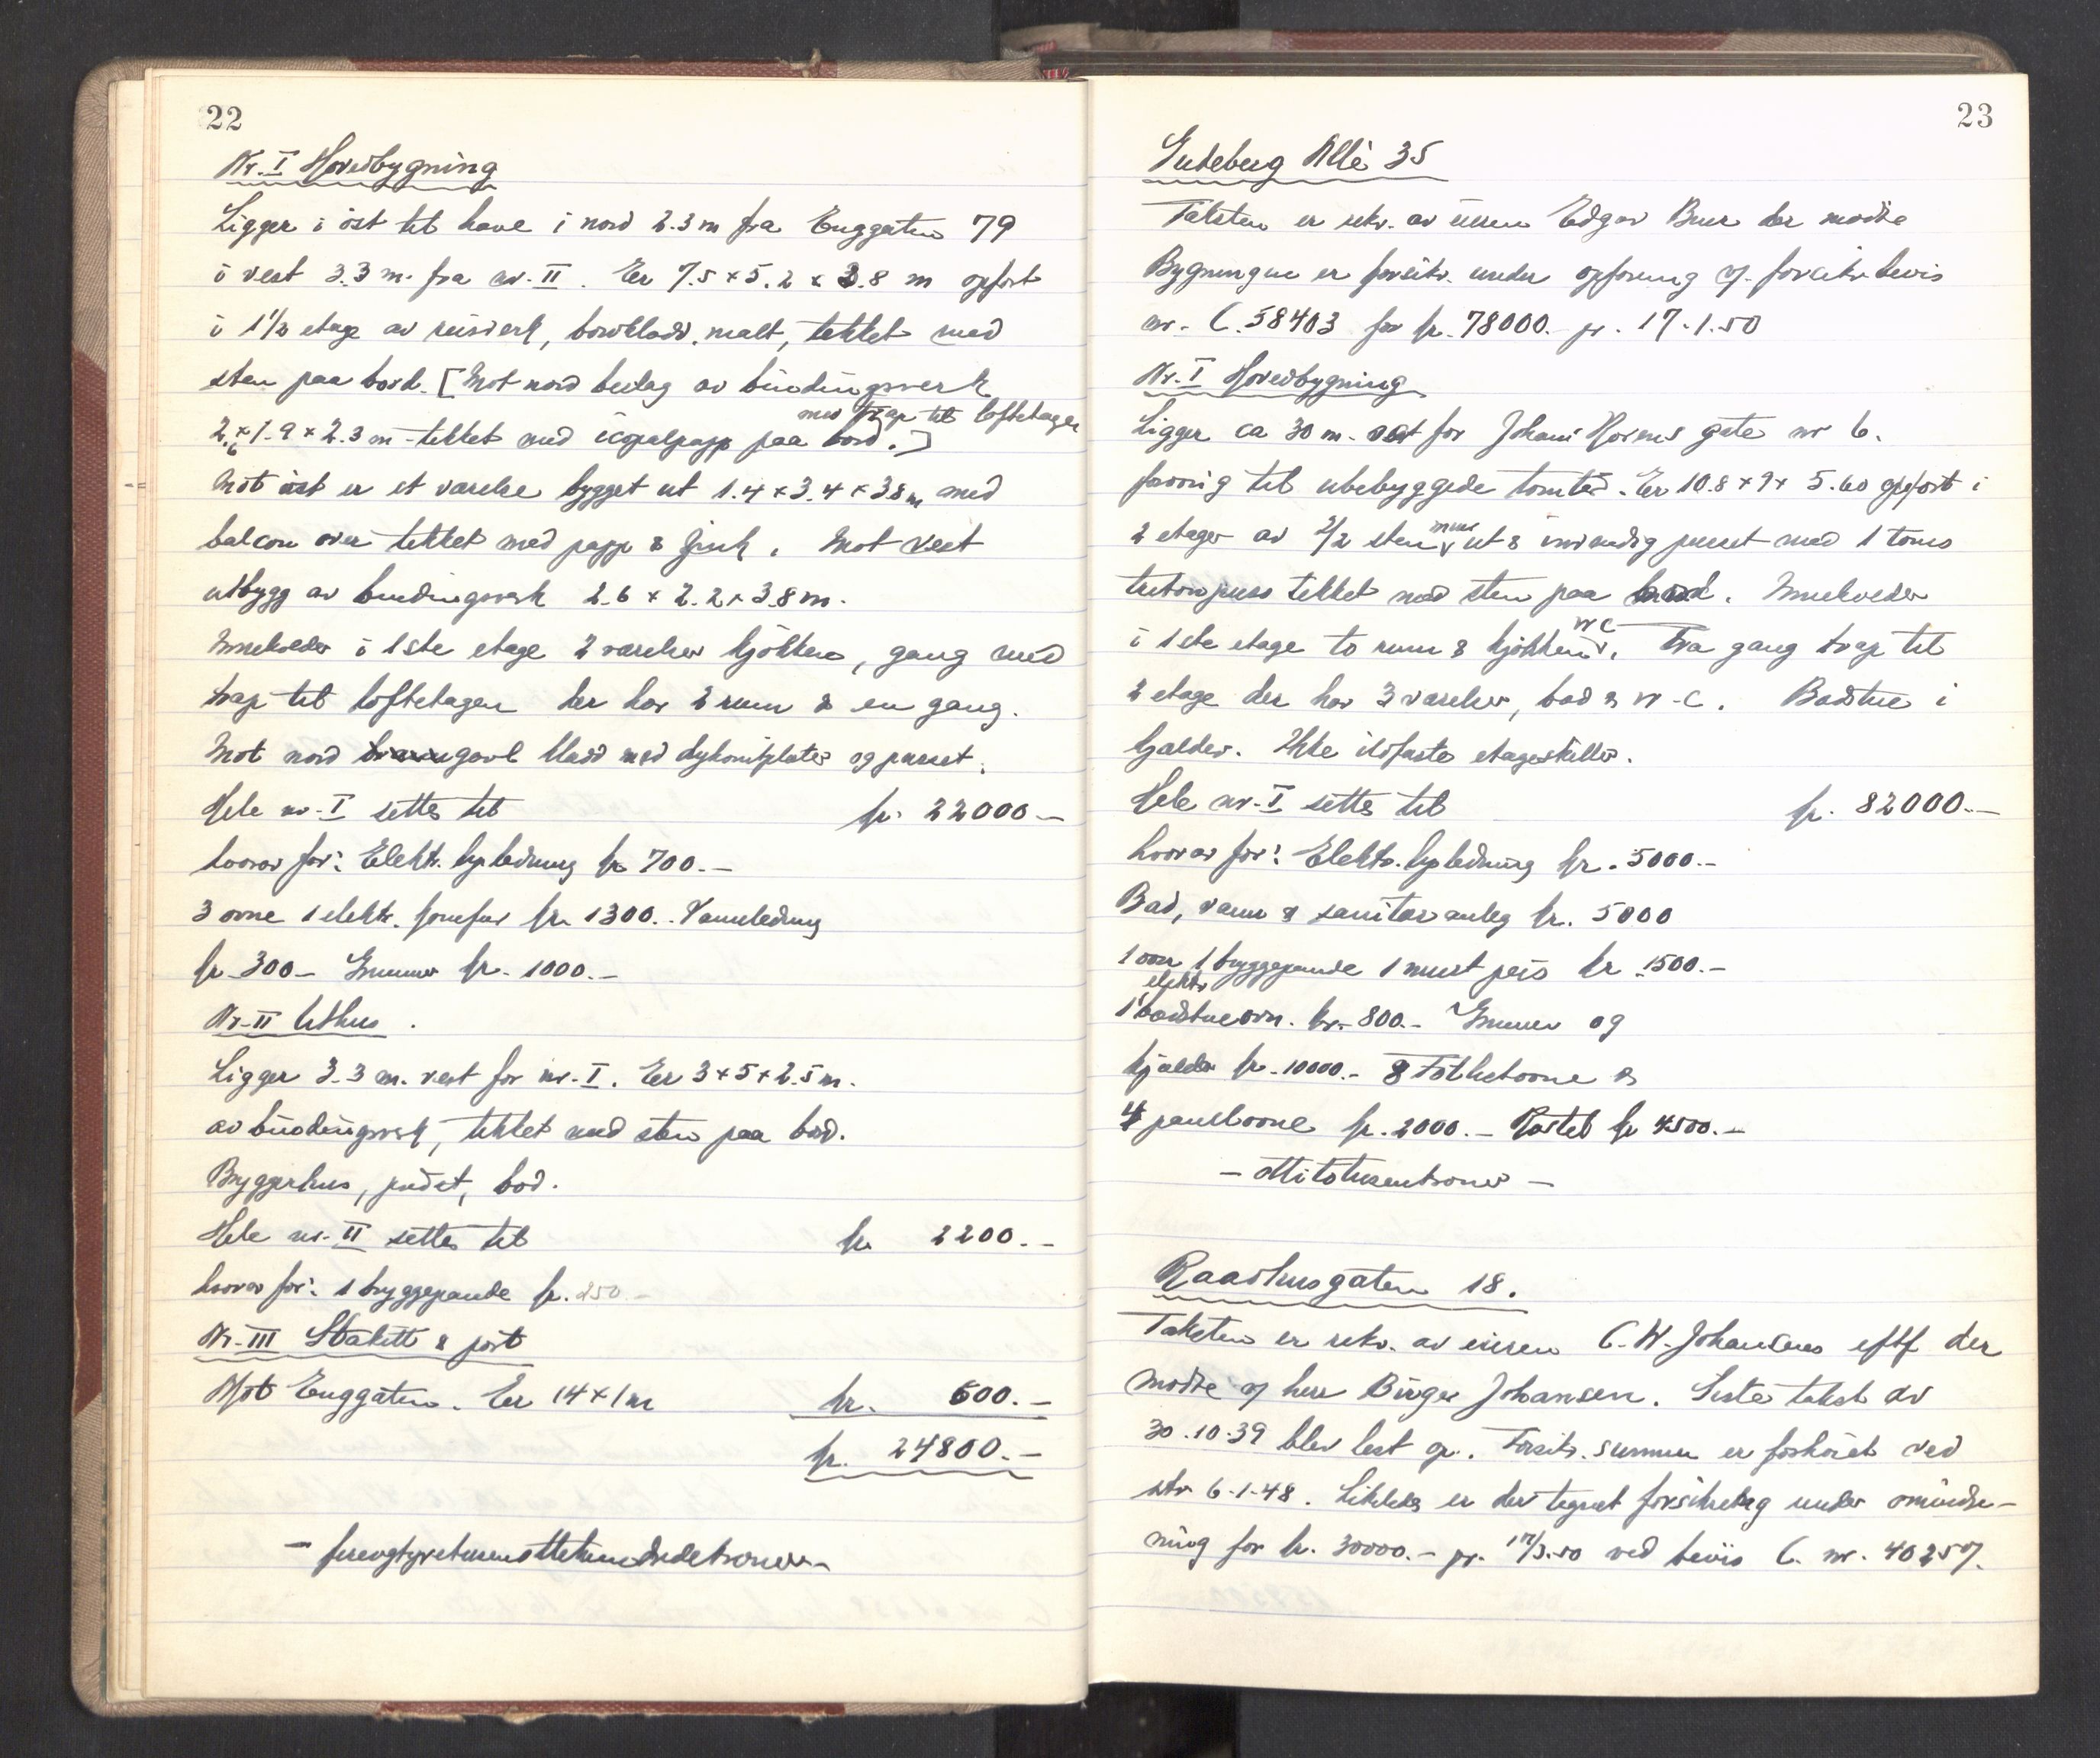 22
Nr. I Hovedbygning
Ligger i öst til have i nord 2.3 m fra Enggaten 79
i vest 3.3 m. fra nr. II. Er 7.5 x 5.2 x 3.8 m opfört
i 1 1/2 etage av reisverk, bordkladd, malt, tekket med
sten paa bord. [Mot nord beslag av bindingsverk
med trap til loftetagen
2.6 x 1.9 x 2.3 m - tekket med icopalpapp paa bord.]
Mot öst er et værelse bygget ut 1.4 x 3.4 x 3.8 m med
balcon over tekket med papp & zink. Mot vest
utbygg av bindingsverk 2.6 x 2.2 x 3.8 m.
Inneholder i 1ste etage 2 værelser kjökken, gang med
trap til loftetagen der har 2 rum & en gang.
Mot nord gavl kladd med plater og pusset.
Hele nr. I settes til kr. 22000.-
hvorav for: Elektr. lysledning kr 700.-
3 ovne 1 elektr. komfur kr. 1300.- Vannledning
kr. 300- Grunmur kr. 1000.-
Nr. II Uthus.
Ligger 3.3 m. vest for nr. I. Er 3 x 5 x 2.5 m.
av bindingsverk, tekket med sten paa bord.
Bryggerhus, bod.
Hele nr. II settes til kr. 2200.-
hvorav for: 1 bryggepande kr. 250.-
Nr. III Stakitt & port
Mot Enggaten. Er 14 x 1 m kr. 600.-
kr. 24800.-
- fireogtyvetusenottehundredekroner -
23
Gudeberg Allè 35
Taksten er rekv. av eieren Edgar der mödte
Bygningen er forsikr. under opföring if. forsikr. bevis
nr. C.58403 for kr. 78000.- pr. 17.1.50
Nr. I Hovedbygning
Ligger ca 30 m. öst for Johani gate nr 6.
forövrig til ubebyggede tomter. Er 10.8 x 9 x 5.60 opfört i
2 etager av 2/2 sten mur ut & invendig pusset med 1 toms
pus tekket med sten paa bord. Inneholder
i 1ste etage to rum & kjökken WC. Fra gang trap til
2 etage der har 3 værelser, bad & W-C. Badstue i
kjælder. Ikke ildfaste etageskiller.
Hele nr. I settes til kr. 82000.-
hvorav for: Elektr. lysledning kr. 5000.-
Bad, vann & sanitæranleg kr. 5000
1 ovn 1 bryggepande 1 muret peis kr. 1500.-
1 elektr. badstueovn. kr. 800.- Grunmur og
kjælder kr. 10000.- 8 &
4 panelovne kr. 2000.- kr 4500.-
- ottitotusenkroner -
Raadhusgaten 18.
Taksten er rekv. av eieren C. W. Johansens eftf der
mödte if herr Birger Johansen. Siste takst av
30.10.39 blev lest op. Forsikr. summen er forhöiet ved
skr 6.1.48. Likeledes er der tegnet forsikring under ominnred-
ning for kr. 30000.- pr. 17/3.50 ved bevis C. nr. 40257.